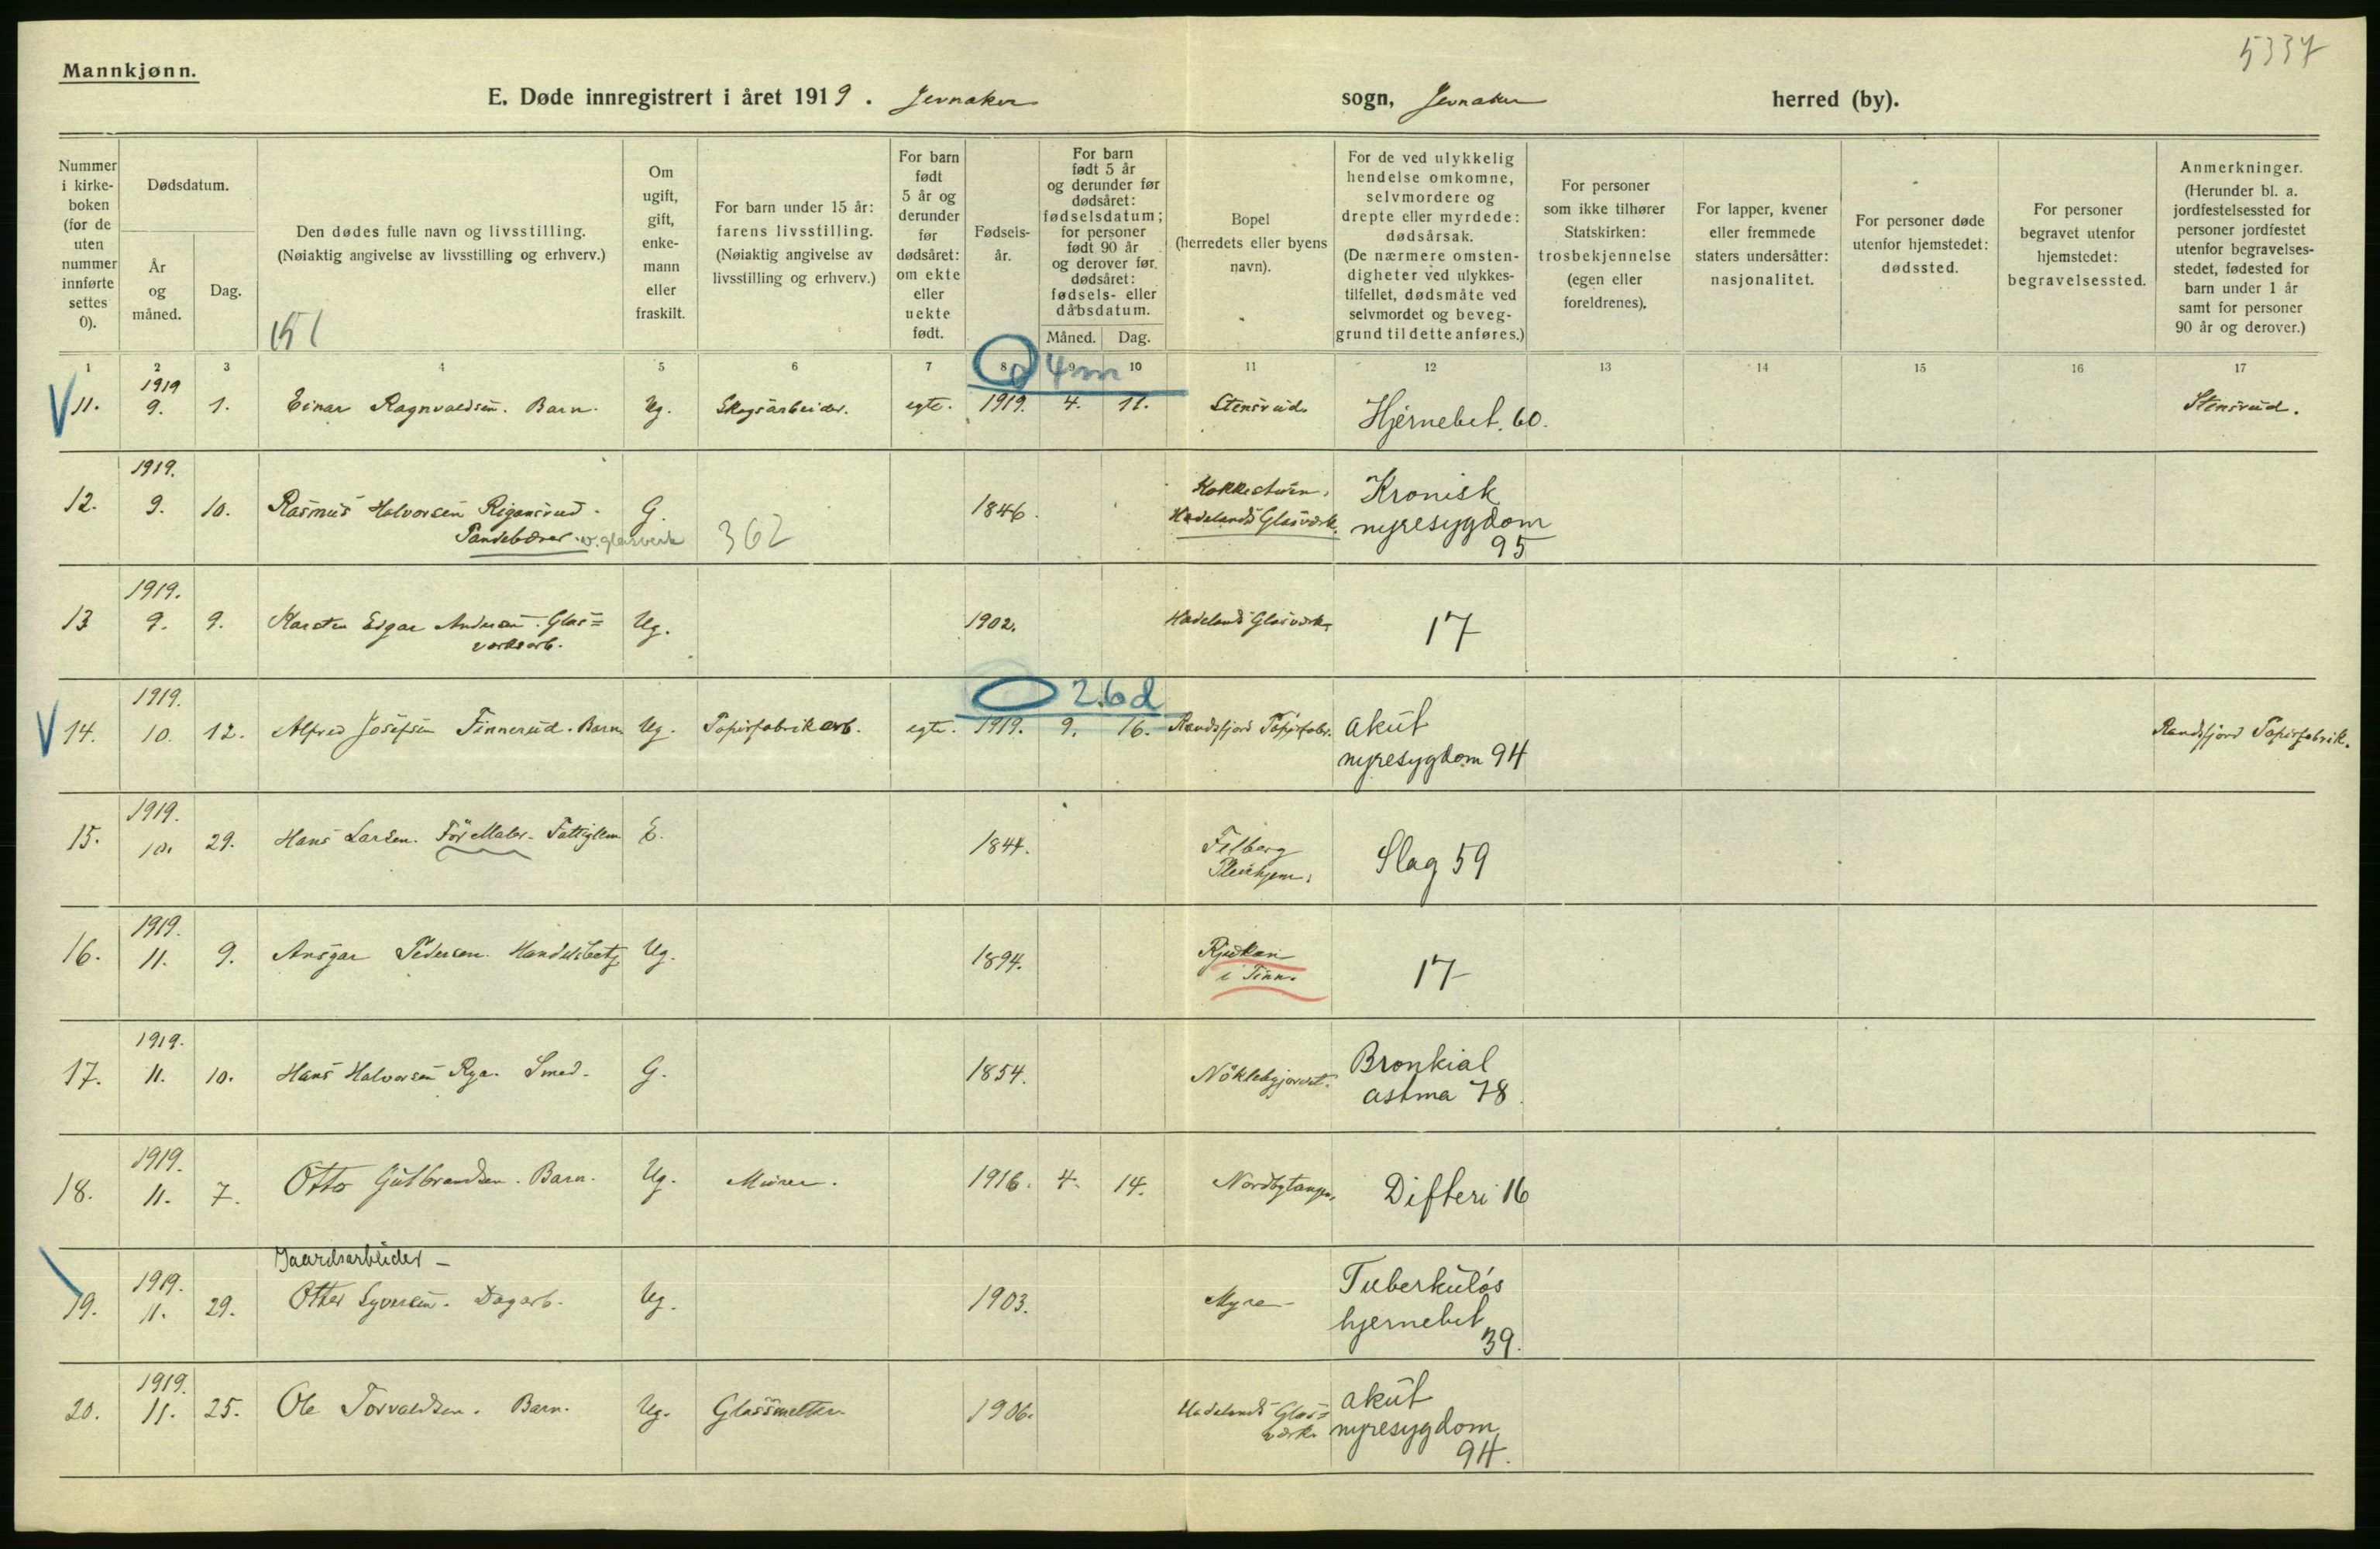 5337
Mannkjønn.
E. Døde innregistrert i året 1919. Jevnaker sogn, Jevnaker herred (by).
Nummer i kirke- boken (for de uten nummer innførte settes 0).
Dødsdatum.
År og måned.
Dag.
Den dødes fulle navn og livsstilling.
(Nøiaktig angivelse av livsstilling og erhverv.)
151
Om ugift, gift, enke- mann eller fraskilt.
For barn under 15 år: farens livsstilling. (Nøiaktig angivelse av livsstilling og erhverv.)
For barn født 5 år og derunder før dødsåret: om ekte eller uekte født.
Fødsels- år.
For barn født 5 år og derunder før dødsåret: fødselsdatum; for personer født 90 år og derover før dødsåret: fødsels- eller dåbsdatum.
Måned. Dag.
Bopel (herredets eller byens navn).
For de ved ulykkelig hendelse omkomne, selvmordere og drepte eller myrdede: dødsårsak. (De nærmere omsten- digheter ved ulykkes- tilfellet, dødsmåte ved selvmordet og beveg- grund til dette anføres.)
For personer som ikke tilhører Statskirken: trosbekjennelse (egen eller foreldrenes).
For lapper, kvener eller fremmede staters undersåtter: nasjonalitet.
For personer døde utenfor hjemstedet: dødssted.
For personer begravet utenfor hjemstedet: begravelsessted.
Anmerkninger. (Herunder bl. a. jordfestelsessted for personer jordfestet utenfor begravelses- stedet, fødested for barn under 1 år samt for personer 90 år og derover.)
1 2 3 4 5 6 7 8 9 10 11 12 13 14 15 16 17
4m
1919
11. 9. 1. Einar Ragnvaldsen. Barn. Ug. Skogsarbeider. egte. 1919. 4. 11. Stensrud. Hjernebet. 60. Stensrud.
1919.
12. 9. 10. Rasmus Halvorsen Rigansrud. G. 1846. Kokkestuen, Kronisk
v. glasverk 362 Hadelands Glasværk. nyresygdom
95
1919.
13 9. 9. Karsten Edgar Andersen. Glas= Ug. 1902. Hadelands Glasværk. 17
verksarb.
26d
1919.
14. 10. 12. Alfred Josefsen Finnerud. Barn. Ug. Papirfabrikarb. egte. 1919. 9. 16. Randsfjord Papirfabr. akut Randsfjord Papirfabrik.
nyresygdom 94
1919.
15. 10. 29. Hans Larsen. Før Maler. Fattiglem E. 1844. Felberg
Pleiehjem. Slag 59
1919.
16. 11. 9. Ansgar Pedersen. Handelsbetj. Ug. 1894. Rjukan
i Tinn. 17
1919.
17. 11. 10. Hans Halvorsen Rya. Smed. G. 1854. Bronkial
astma 78.
1919.
18. 11. 7. Otto Gulbrandsen. Barn. Ug. Murer. 1916. 4. 14. Nordbytangen. Difteri 16
Gaardsarbeider -
1919.
19. 11. 29. Syversen. Dagarb. Ug. 1903. Myra Tuberkuløs
hjernebet
39.
1919.
20. 11. 25. Ole Torvaldsen. Barn. Ug. Glassmelter 1906. Hadelands Glas= akut
værk. nyresygdom
94.